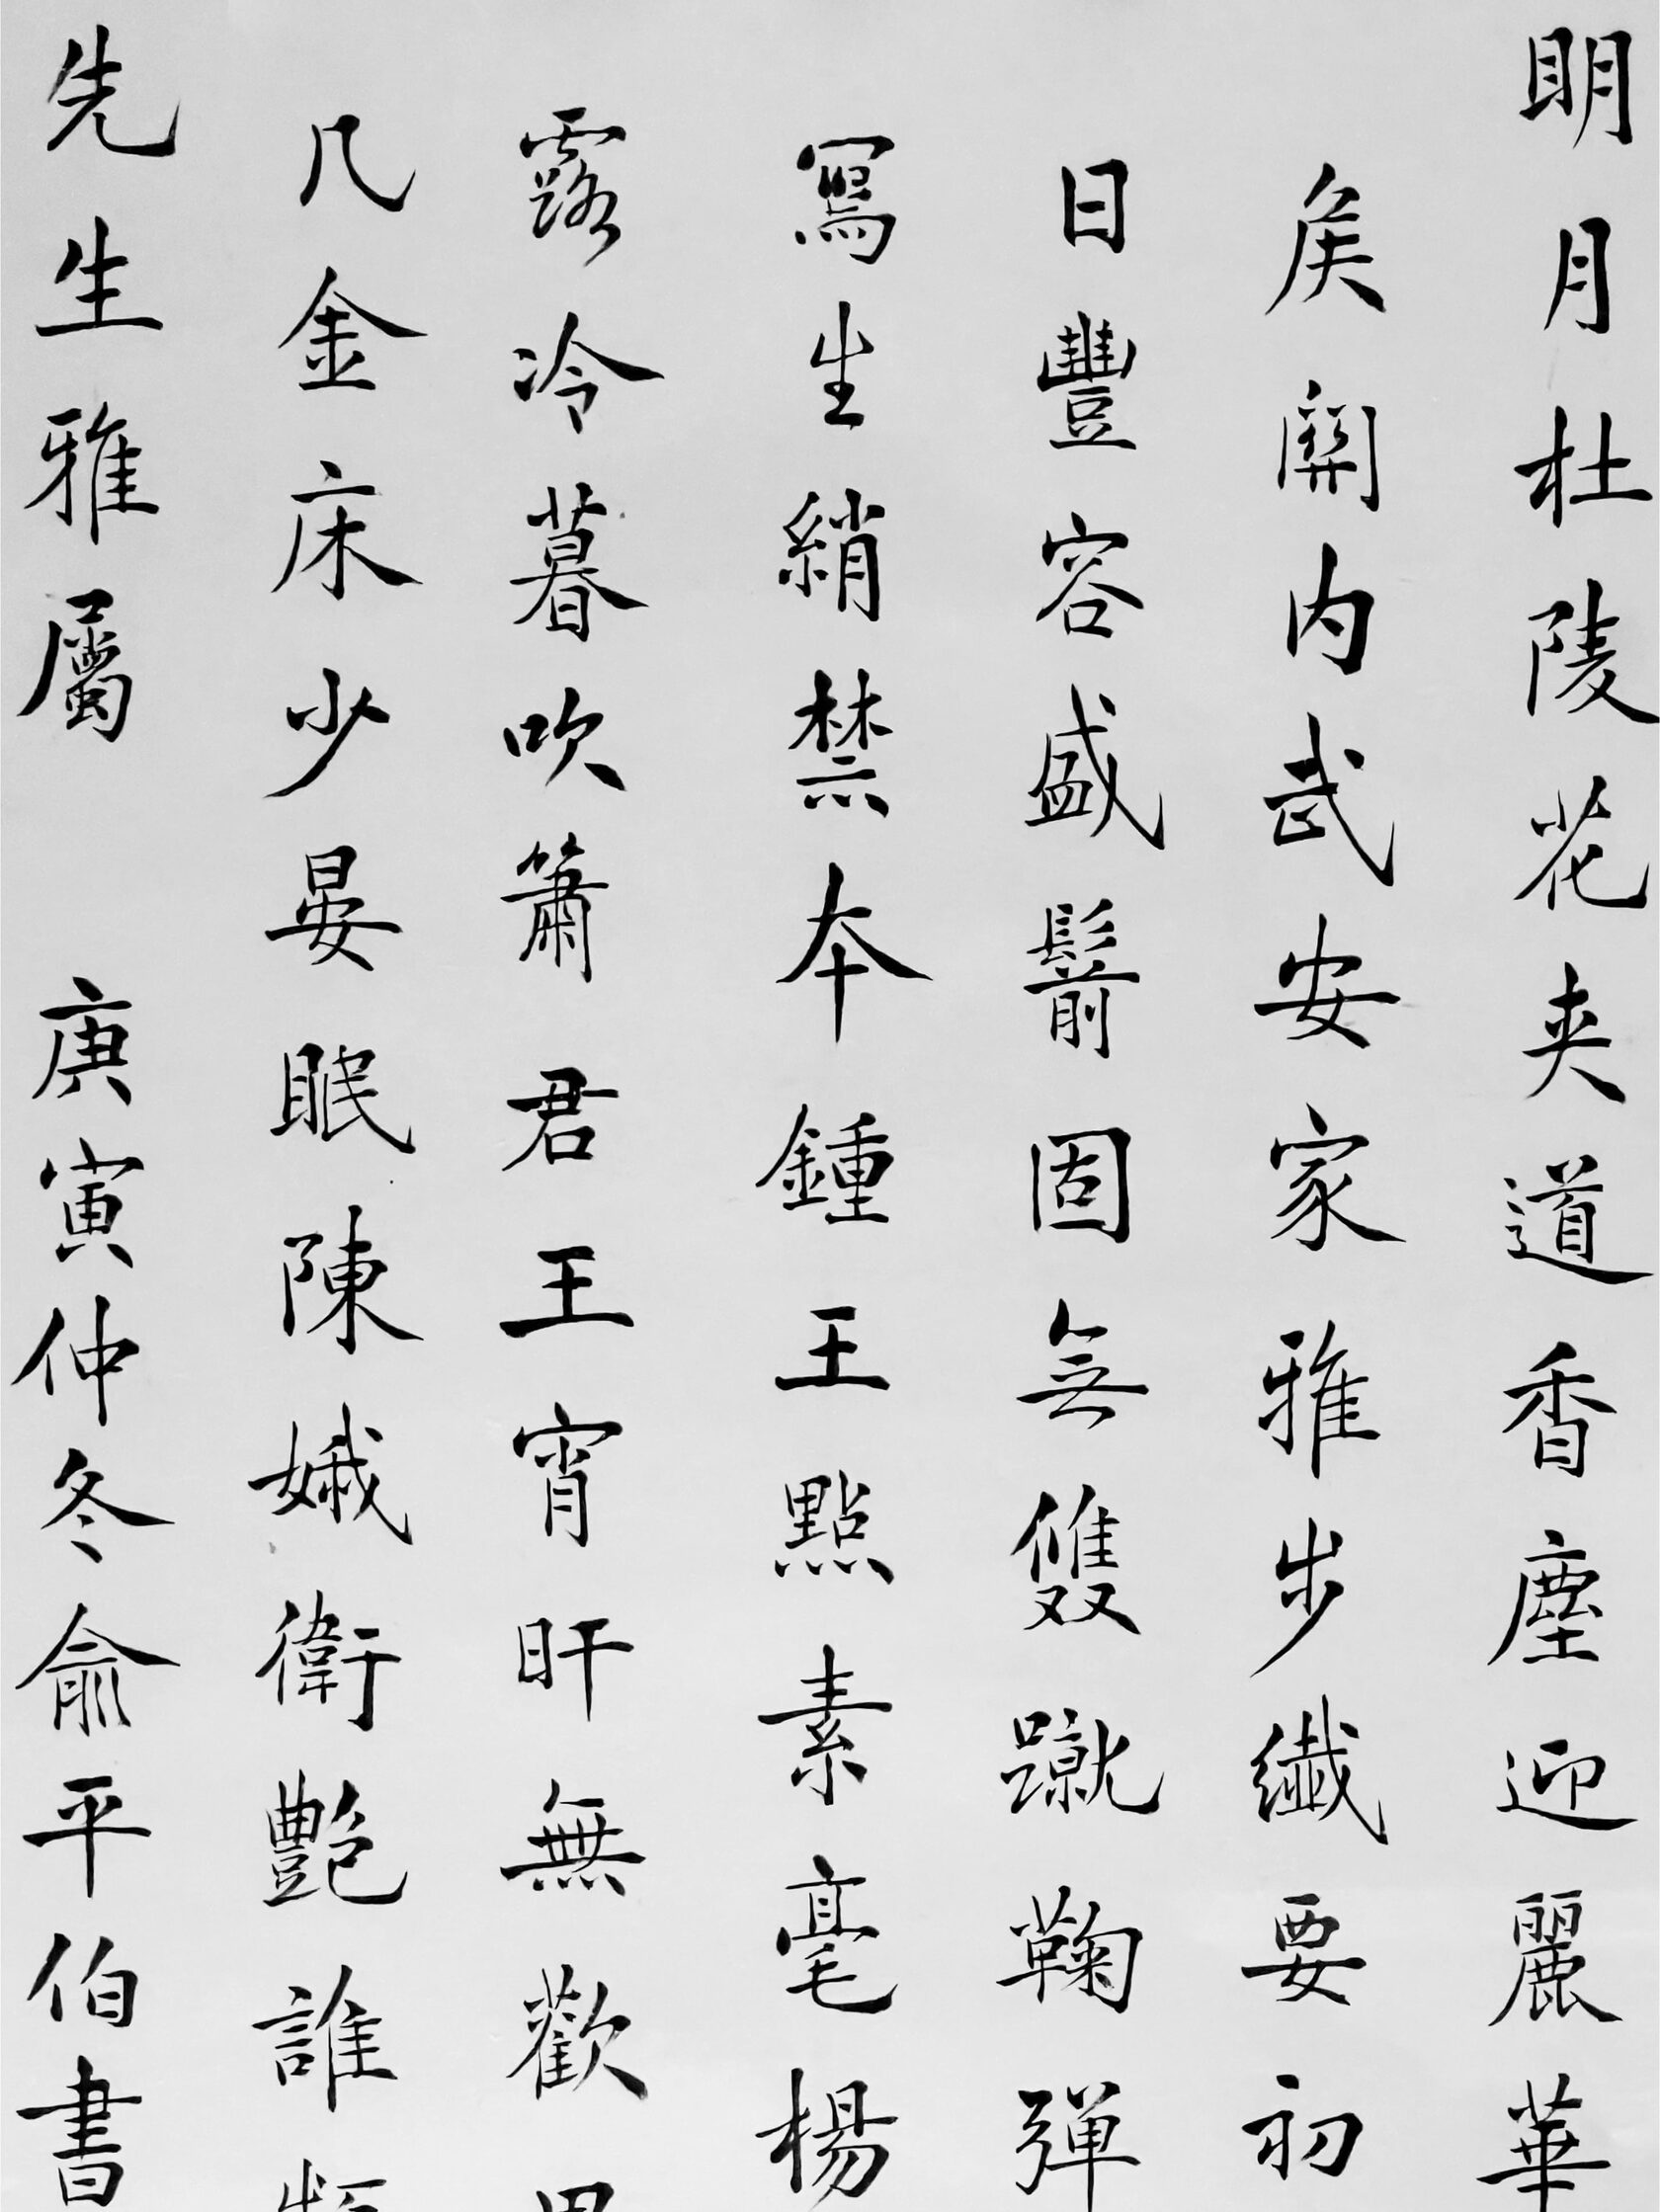 明月杜陵花夾道香塵迎麗華
矦關内武安家雅步纖要初
日豐容盛鬋固無雙蹴鞠彈
寫生綃禁本鍾王點素毫楊
露冷暮吹簫君王宵旰無歡
几金床少晏眠陳娥衛艷誰
先生雅屬 庚寅仲冬俞平伯書